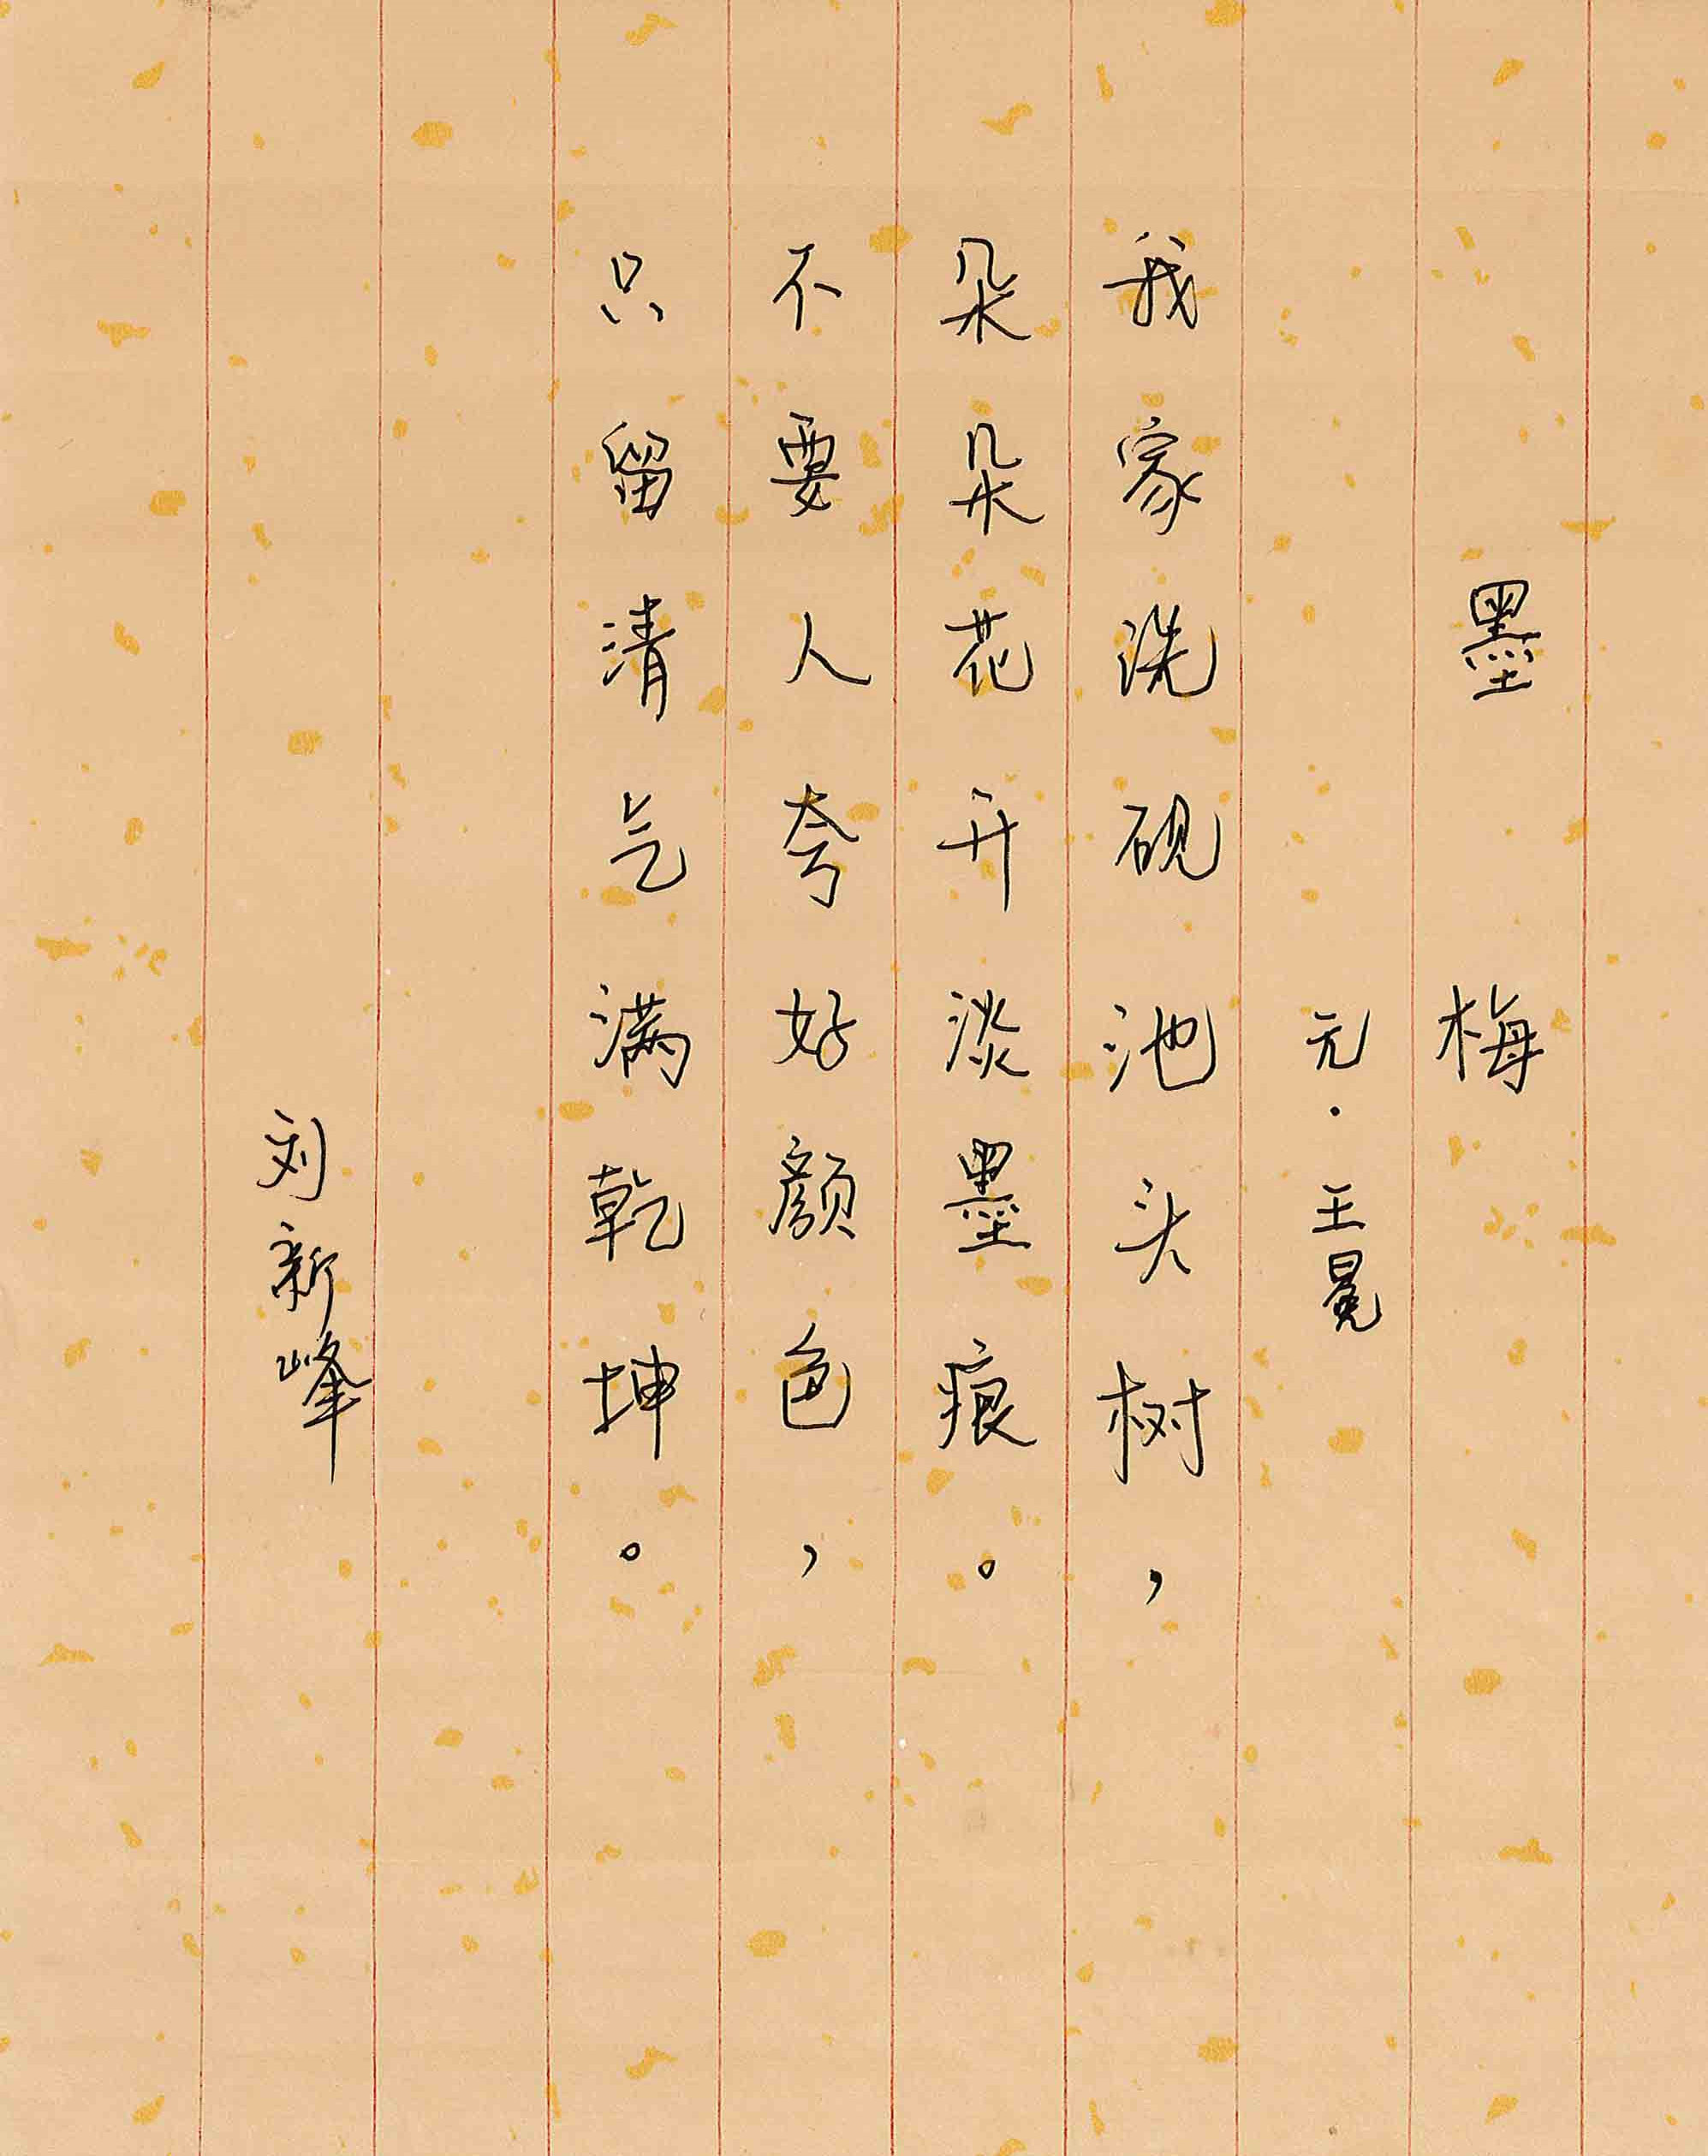 墨梅
元·王冕
我家洗砚池头树，
朵朵花开淡墨痕。
不要人夸好颜色，
只留清气满乾坤。
刘新峰